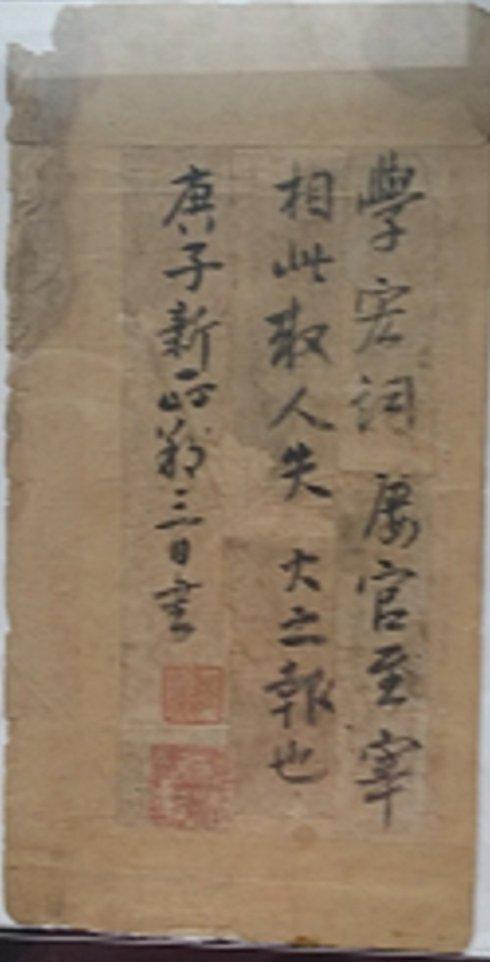 學宏詞屢官至宰
相此取人失大之報也
庚子新正第三日書